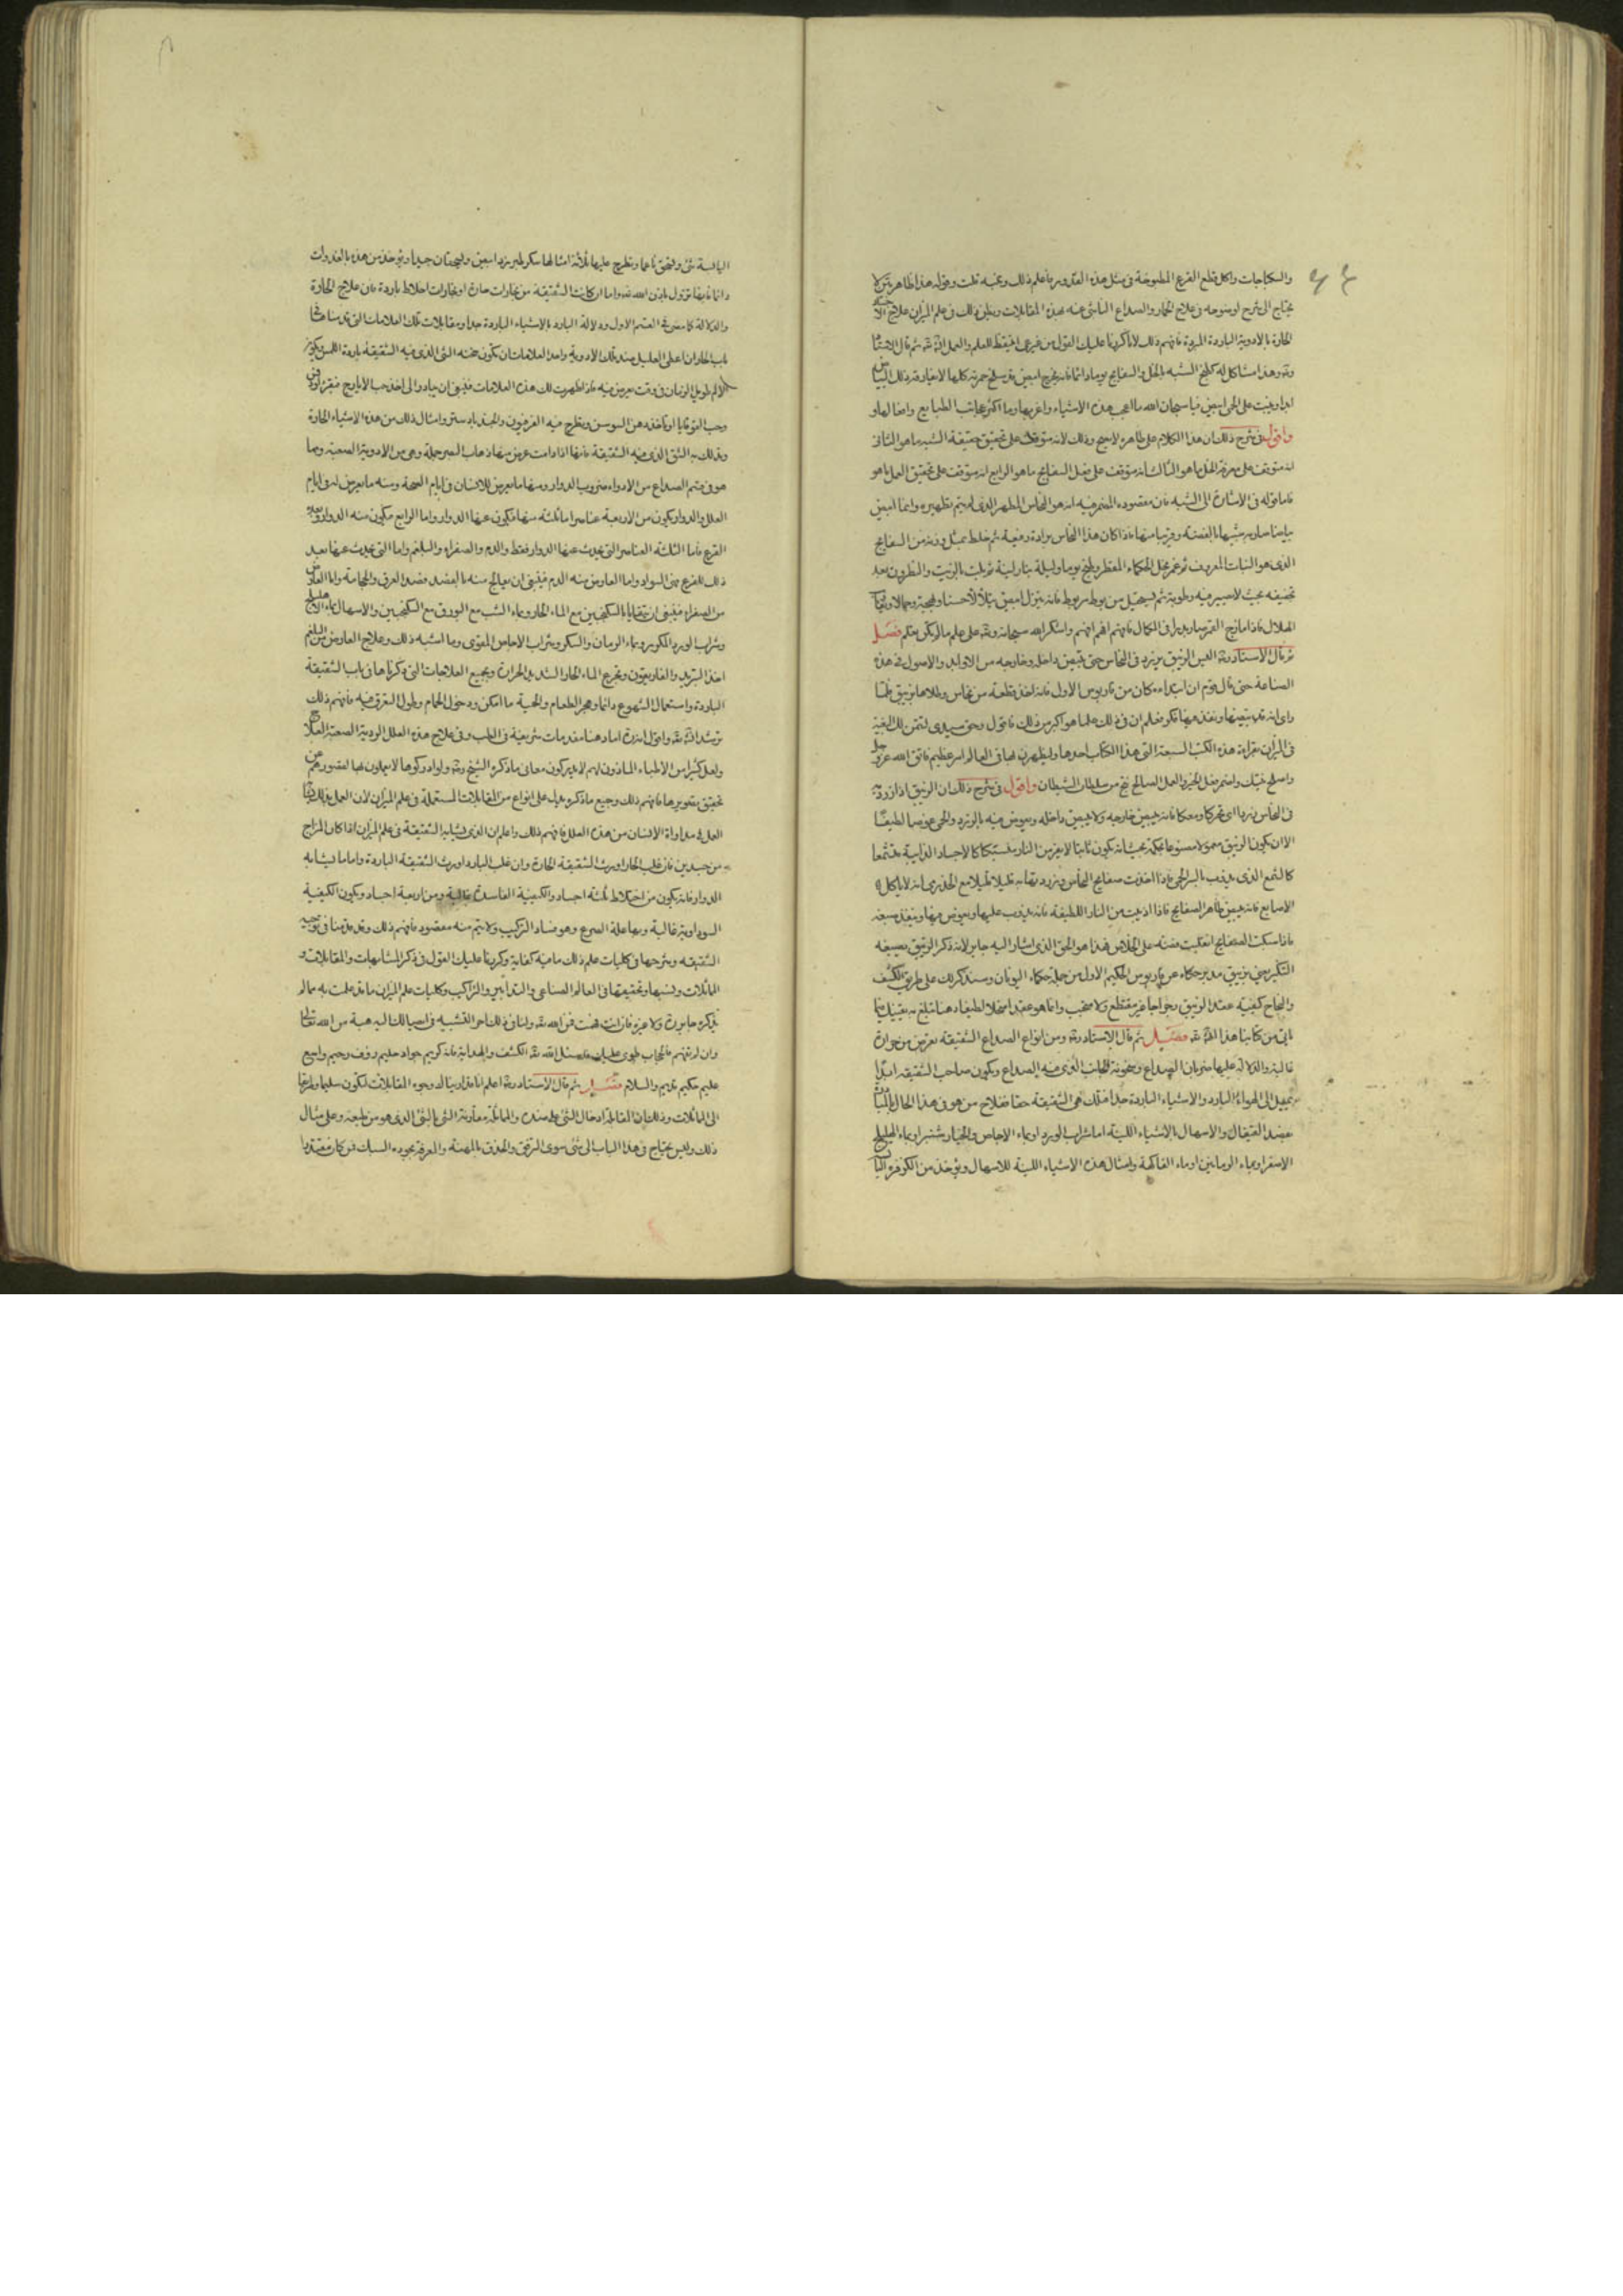 والسكباجات واكل قطع القرع المطبوخة في مثل هذه القدور فاعلم ذلك وتجنبه قلت وقوله هذا ظاهر بين لا
يحتاج الى شرح اوضحه في علاج الخمار والصداع الناشئ عنه بهذه المقابلات ونظير ذلك في علم الميزان علاج
الحارة بالادوية الباردة المبردة فافهم ذلك لانا كررنا عليك القول من غير مرة للعلم والعمل ان شاء الله ثم قال الاستاذ
وهذا مشاكل له كطبخ الشبه بالخل والسفايج يوما دائما فانه يخرج ابيض قد سلخ حمرته كلها الاغبار فتر ذلك
ابدا ويثبت على الحمي ابيض فيا سبحان الله ما اعجب هذه الاشياء واغربها وما اكثر عجائب الطبايع وافعالها
واقول في شرح ذلك ان هذا الكلام على ظاهره لا يصح وذلك لانه متوقف على تحقيق حقيقة الشبه ما هو الثاني
انه متوقف على معرفة الخل ما هو الثالث انه متوقف على فعل السفايج ما هو الرابع انه متوقف على تحقيق العمل ما هو
فاما قوله في الاشارة الى الشبه فان مقصوده المضمر فيه انه هو النحاس المطهر الذي لم يتم تطهيره وانما ابيض
بياضا صار به شبيها بالفضة وقريبا منها فاذا كان هذا النحاس برادة رقيقة ثم خلط بمثل وزنه من السفايج
الذي هو النبات المعروف ثم غمر بخل الحكماء المقطر وطبخ يوما وليلة بنار لينة ثم يلت بالزيت والنطرون بعد
تجفيفه بحيث لا يصير فيه رطوبة ثم يستنزل من بوط بربوط فانه ينزل ابيض يتلألأ حسنا وبهجة
الهلال فاذا مازج القمر صار بدرا في الكمال فافهم افهم افهم واشكر الله سبحانه وتعالى على علم ما لم تكن تعلم فصل
ثم قال الاستاذ العين الزئبق يزرد في النحاس حتى يبيض داخله وخارجه من الاوليه والاصول في هذه
الصناعة حتى قال قوم ان ابتداءه كان من قاريوس الاول فانه اخذ قطعة من نحاس وطلاها بزيبق فلما
رأى انه قد بيضها ونفذ فيها فكر فعلم ان في ذلك علما هو اكبر من ذلك فاقول وحق سيدي لتمرن بك البغية
في الزمن بقراءة هذه الكتب السبعة التي هذا الكتاب احدها وليظهرن بها في العالم امر عظيم فاتق الله عز وجل
واصلح نيتك واضمر فعل الخير والعمل الصالح تنج من سلطان الشيطان واقول في شرح ذلك ان الزئبق اذا زرد به
في النحاس زردا اي بحركا ومعكا فانه يبيض خارجه ولا يبيض داخله ويغوص فيه بالزرد والحمي غوصا لطيفا
الا ان يكون الزئبق معمولا مصنوعا بحكمة بحيث انه يكون ثابتا لا يفر من النار مستمسكا كالاجساد الذايبة مشمعا
كالشمع الذي يذوب بالسراج فاذا اخذت صفايح النحاس وزرد بها به قليلا قليلا مع الحذر لئلا ياكل
الاصابع فانه يبيض ظاهر الصفايح فاذا اذيبت من النار اللطيفة فانه يذوب عليها ويغوص فيها وينفذ صبغه
فاذا سبكت الصفايح انقلبت فضة على الخلاص فهذا هو الحق الذي اشار اليه جابر لانه ذكر الزئبق بصيغة
التنكير يعني بزيبق مدبر حكاه عن قاريوس الحكيم الاول من جملة حكماء اليونان وسنذكر لك على طريق الكشف
والنجاح كيفية عقد الزئبق رجراجا غير منقطع ولا متحجب وانما هو عقدا منحلا لطيفا دهنا تبلغ به بغيتك فيما
ياتي من كتابنا هذا ان شاء الله تعالى فصل ثم قال الاستاذ ومن انواع الصداع الشقيقة تعرض من حرارة
غالبة والدلالة عليها ضربان الصداع وسخونة الجانب الذي فيه الصداع ويكون صاحب الشقيقة ابدا
يميل الى الهواء البارد والاشياء الباردة جدا فتلك هي الشقيقة حقا فعلاج من هو في هذا الحال
بفصد القيفال والاسهال بالاشياء اللينة اما شراب الورد او ماء الاجاص والخيار شنبر او ماء الهليلج
الاصفر او بماء الرمانين او ماء الفاكهة وامثال هذه الاشياء اللينة للاسهال ويؤخذ من الكزبرة
اليابسة شئ ويدق ناعما ويطرح عليها ثلاثة امثالها سكر طبرزد ابيض ويسحقان جيدا ويؤخذ من هذه بالغدوات
دائما فانها تزول باذن الله تعالى واما ان كانت الشقيقة من بخارات حارة او بخارات اخلاط باردة فان علاج الحارة
والدلالة كما مضى في القسم الاول ودلالة البارد بالاشياء الباردة جدا ومقابلات تلك العلامات التي قدمناها
باب الحار ان اعلى العليل بضد تلك الادوية واحد العلامات ان تكون صفحة الشق الذي فيه الشقيقة باردة اللمس ويكون
الالم طويل الزمان في وقت يعرض فيه فاذا ظهرت لك هذه العلامات فينبغي ان يبادر الى اخذ حب الايارج فيقرا
وحب القوقايا او تاخذ دهن السوسن وتطرح فيه الفربيون والجندبادستر وامثال ذلك من هذه الاشياء الحارة
ويدلك به الشق الذي فيه الشقيقة فانها اذا دامت عرض منها ذهاب البصر جملة وهي من الادوية الصعبة ومما
هو في قسم الصداع من الادواء ضروب الدوار ومنها ما يعرض للانسان في ايام الصحة ومنه ما يعرض له في ايام
العلل والدوار يكون من الاربعة عناصر اما ثلاثة منها فيكون عنها الدوار واما الرابع فيكون منه الدوار وبعده
الصرع فاما الثلثة العناصر التي يحدث عنها الدوار فقط والدم والصفراء والبلغم واما التي يحدث عنها بعد
ذلك الصرع فهي السوداء واما العارض منه الدم فينبغي ان يعالج منه بالفصد فصد العرق والحجامة واما العارض
من الصفراء فينبغي ان يتقيا بالسكنجبين مع الماء الحار وماء الشبت مع البورق مع السكنجبين والاسهال بماء الهليلج
وشراب الورد المكرر وماء الرمان والسكر وشراب الاجاص المقوي وما اشبه ذلك وعلاج العارض من البلغم
اخذ التربد والغاريقون وتجرع الماء الحار الشديد الحرارة وبجميع العلاجات التي ذكرناها في باب الشقيقة
الباردة واستعمال التهوع دائما وهجر الطعام والحمية ما امكن ودخول الحمام وطول التعرق فيه فافهم ذلك
ترشد ان شاء الله تعالى واقول انه قد افاد هنا مقدمات شريفة في الطب وفي علاج هذه العلل الردية الصعبة العلاج
ولعل كثيرا من الاطباء الماذون لهم لا يدركون معاني ما ذكره الشيخ ولو ادركوها لا يعملون بها لقصورهم عن
تحقيق تصويرها فافهم ذلك وجميع ما ذكره يدلك على انواع من المقابلات المستعملة في علم الميزان لان العمل بذلك
العلل في مداواة الانسان من هذه العلل فافهم ذلك واعلم ان الذي يشابه الشقيقة في علم الميزان اذا كان المزاج
من جسدين فان غلب الحار اورث الشقيقة الحارة وان غلب البارد اورث الشقيقة الباردة واما ما يشابه
الدوار فانه يكون من اختلاط ثلثة اجساد والكيفية الفاسدة غالبة ومن اربعة اجساد ويكون الكيفية
السوداوية غالبة وبها علة الصرع وهو فساد التركيب ولا يتم منه مقصود فافهم ذلك وقد قدمنا في توجيه
الشقيقة وشرحها في كليات علم ذلك ما فيه كفاية وكررنا عليك القول في ذكر المشابهات والمقابلات و
المماثلات ونسبها وتحقيقها في العالم الصناعي والتدابير والتراكيب وكليات علم الميزان ما قد علمت به ما لم
يذكره جابر ولا غيره فان انت فهمت فمن الله تعالى ولنا في ذلك اجر التسبيه في ايصالك اليه هبة من الله تعالى
وان لم تفهم فالحجاب طوى عليك فاسئل الله تعالى الكشف والهداية فانه كريم جواد حليم رؤف رحيم واسع
عليم حكيم قديم والسلام فصل ثم قال الاستاذ اعلم انا قد ارينا لك وجوه المقابلات لتكون سليما وطرقا
الى المماثلات وذلك بان المقابلة ادخال الشئ على ضده والمماثلة مقاومة الشئ بالشئ الذي هو من طبعه وعلى مثال
ذلك وليس يحتاج في هذا الباب الى شئ سوى الترفق والحذق بالمهنة والمعرفة بجودة السبك فمن كان مقتدرا